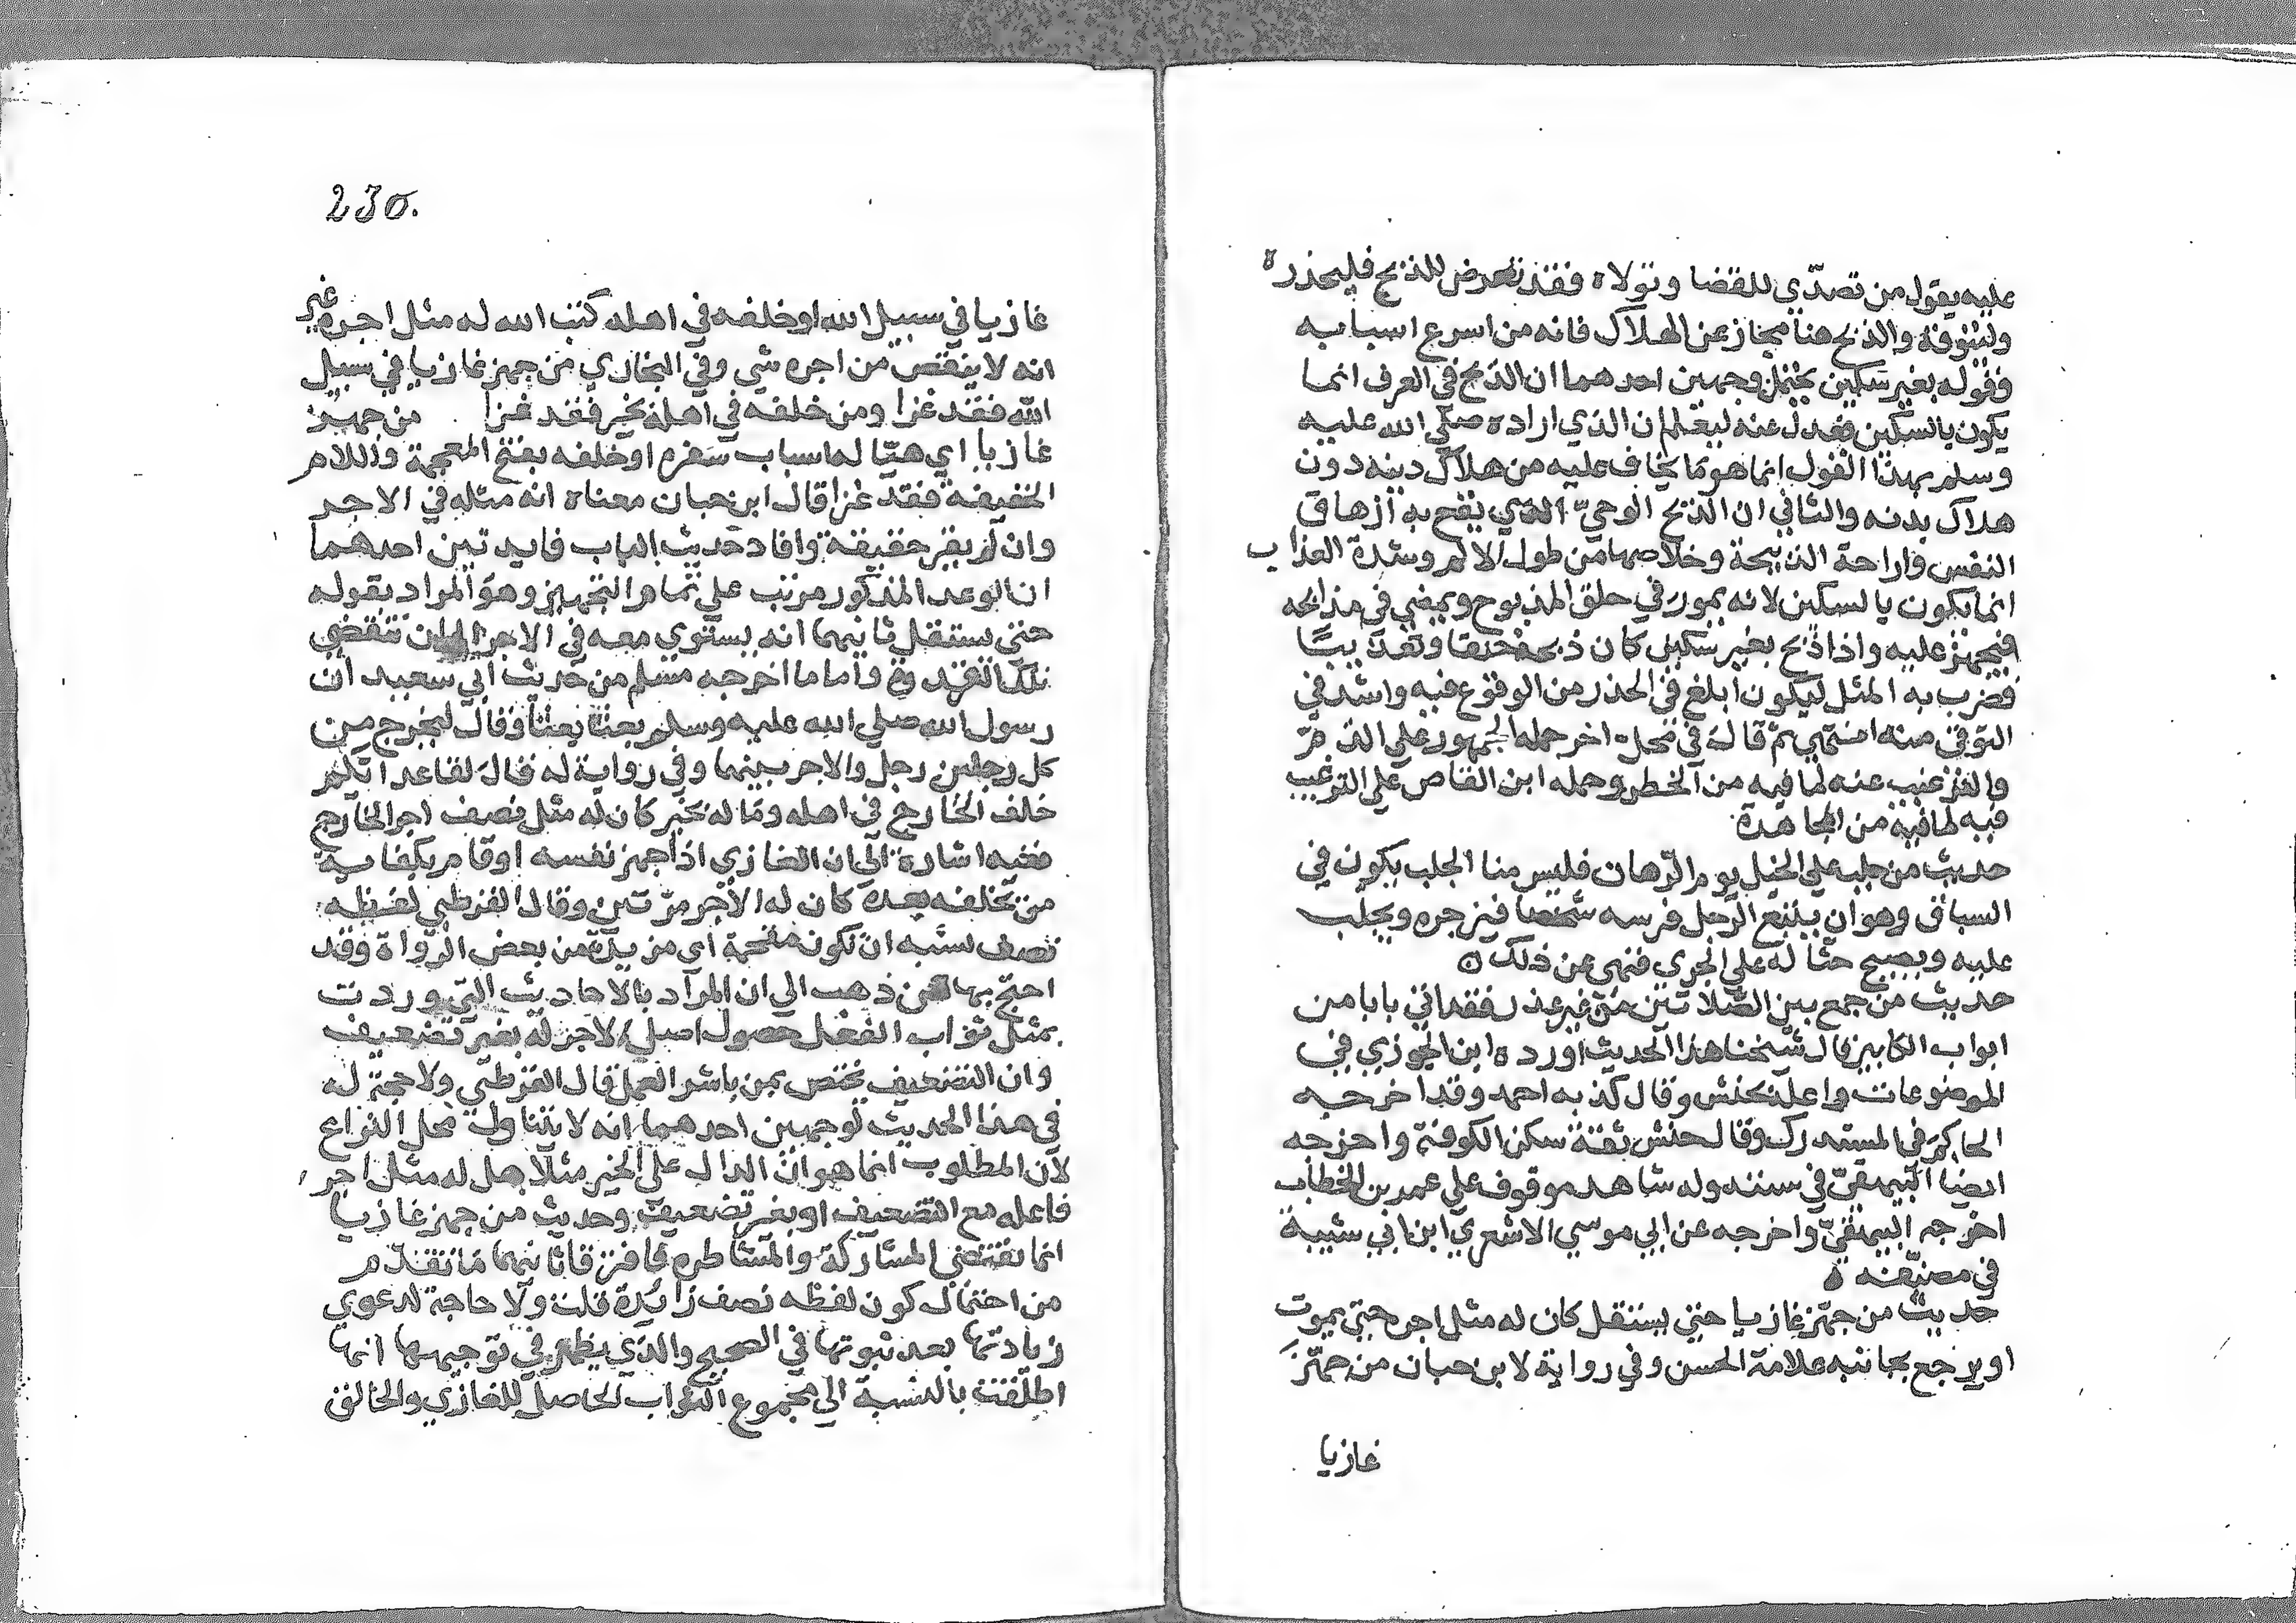 عليه يقول من تصدّي للقضا وتولاه فقد تعرض للذبح فليحذره
وليتوقه والذبح هنا مجاز عن الهلاك فانه من اسرع اسبابه
وقوله بغير سكين يحتمل وجهين احدهما ان الذبح في العرف انما
يكون بالسكين فعدل عنه ليعلم ان الذي اراده صلي الله عليه
وسلم بهذا القول انما هو ما يخاف عليه من هلاك دينه دون
هلاك بدنه والثاني ان الذبح الوحيّ الذي يقع به ازهاق
النفس واراحة الذبيحة وخلاصها من طول الالم وشدة العذاب
انما يكون بالسكين لانه يمور في حلق المذبوح ويمضي في مذابحه
فيجهز عليه واذا ذبح بغير سكين كان ذبحه خنقا وتعذيبا
فضرب به المثل ليكون ابلغ في الحذر من الوقوع فيه واشد في
التوقي منه انتهي ثم قال في محل اخر حمله الجمهور علي الذمّ
والترغيب عنه لما فيه من الخطر وحمله ابن القاص علي الترغيب
فيه لما فيه من المجاهدة
حديث من جلب علي الخيل يوم الرّهان فليس منا الجلب يكون في
السباق وهو ان يتبع الرّجل فرسه شخصا فيزجره ويجلب
عليه ويصيح حثا له علي الجري فنهي عن ذلك ه
حديث من جمع بين الصّلاتين من غير عذر فقد اتي بابا من
ابواب الكبايز قال شيخنا هذا الحديث اورده ابن الجوزي في
الموضوعات واعله بحنش وقال كذبه احمد وقد اخرجه
الحاكم في المستدرك وقال حنش ثقة سكن الكوفة واخرجه
ايضا البيهقيّ في سننه وله شاهد موقوف علي عمر بن الخطاب
اخرجه البيهقيّ واخرجه عن ابي موسي الاشعري ابن ابي شيبة
في مصنّفه ه
حديث من جهّز غازيا حتي يستقل كان له مثل اجره حتي يموت
او يرجع بجانبه علامة الحسن وفي رواية لابن حبان من جهّز
غازيا
230.
غازيا في سبيل الله او خلفه في اهله كتب الله له مثل اجره غير
انه لا ينقص من اجره شي وفي البخاري من جهز غازيا في سبيل
الله فقد غزا ومن خلفه في اهله بخير فقد غزا من جهز
غازيا اي هيّا له اسباب سفره او خلفه بفتح المعجمة واللام
الخفيفة فقد غزا قال ابن حبان معناه انه مثله في الاجر
وان لم يغز حقيقة وافاد حديث الباب فايدتين احدهما
ان الوعد المذكور مرتب علي تمام التجهيز وهو المراد بقوله
حتي يستقل ثانيهما انه يستوي معه في الاجر الي ان تنقضي
تلك الغزوة واما ما اخرجه مسلم من حديث ابي سعيد ان
رسول الله صلي الله عليه وسلم بعث بعثا وقال ليخرج من
كل رجلين رجل والاجر بينهما وفي رواية له فقال لقاعد ايكم
خلف الخارج في اهله وماله بخير كان له مثل نصف اجر الخارج
ففيه اشارة الي ان الغازي اذا جهز نفسه او قام بكفاية
من يخلفه بعده كان له الاجر مرّتين وقال القرطبي لفظه
نصف يشبه ان تكون مقحمة اي مزيدة من بعض الرواة وقد
احتج بها من ذهب الي ان المراد بالاحاديث التي وردت
بمثل ثواب الفعل حصول اصل الاجر له بغير تضعيف
وان التضعيف يختص بمن باشر العمل قال القرطبي ولا حجة له
في هذا الحديث لوجهين احدهما انه لا يتناول محل النزاع
لان المطلوب انما هو ان الدال علي الخير مثلا هل له مثل اجر
فاعله مع التضعيف او بغير تضعيف وحديث من جهز غازيا
انما يقتضي المشاركة والمشاطره فافترقا ثانيهما ما تقدم
من احتمال كون لفظه نصف زائدة قلت ولا حاجة لدعوي
زيادتها بعد ثبوتها في الصحيح والذي يظهر في توجيهها انها
اطلقت بالنسبة الي مجموع الثواب الحاصل للغازي والخالف